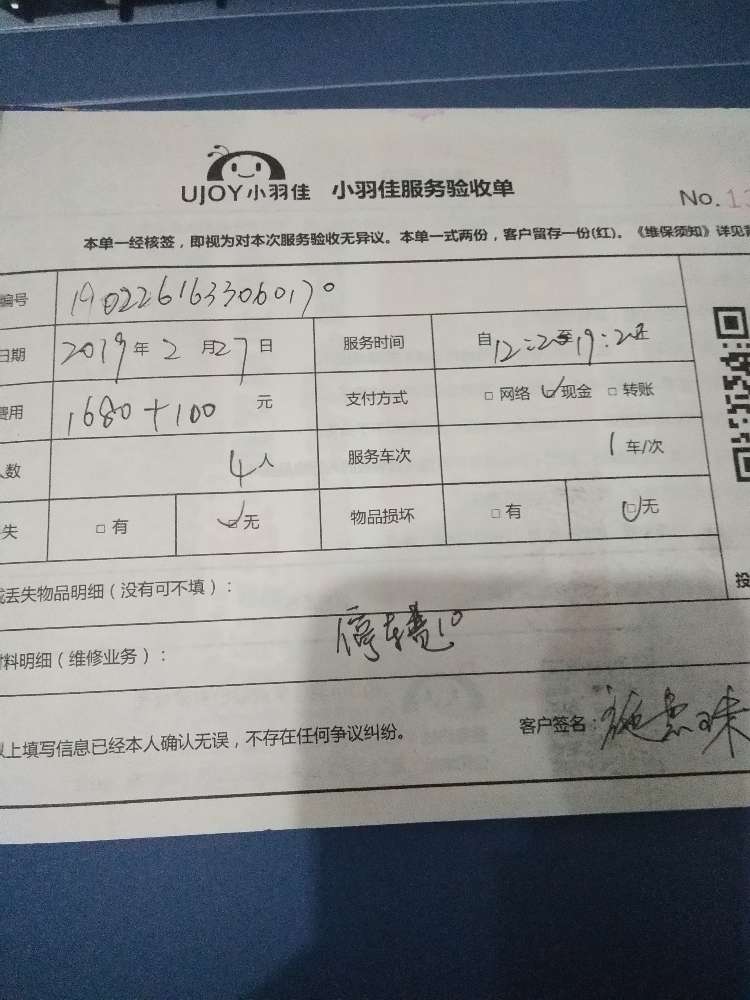 UJOY小羽佳 小羽佳服务验收单
No.13
本单一经核签，即视为对本次服务验收无异议。本单一式两份，客户留存一份(红)。《维保须知》详见背
编号 1902261633060170
日期 2019年2月27日 服务时间 自12:20至19:20止
费用 1680+100元 支付方式 □网络 ☑现金 □转账
人数 4人 服务车次 1车/次
失 □有 ☑无 物品损坏 □有 ☑无
或丢失物品明细（没有可不填）：
材料明细（维修业务）： 停车费10
以上填写信息已经本人确认无误，不存在任何争议纠纷。 客户签名：
投